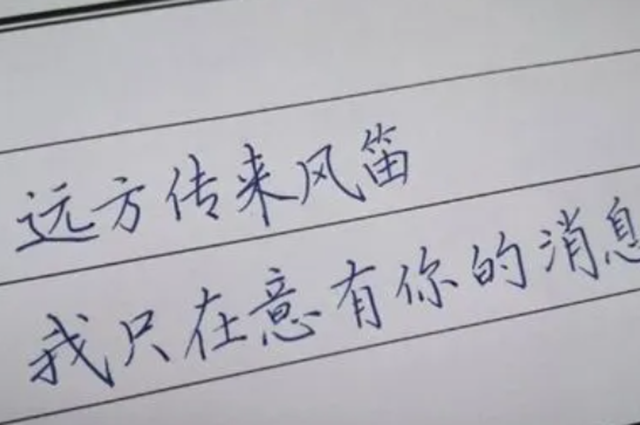 远方传来风笛
我只在意有你的消息